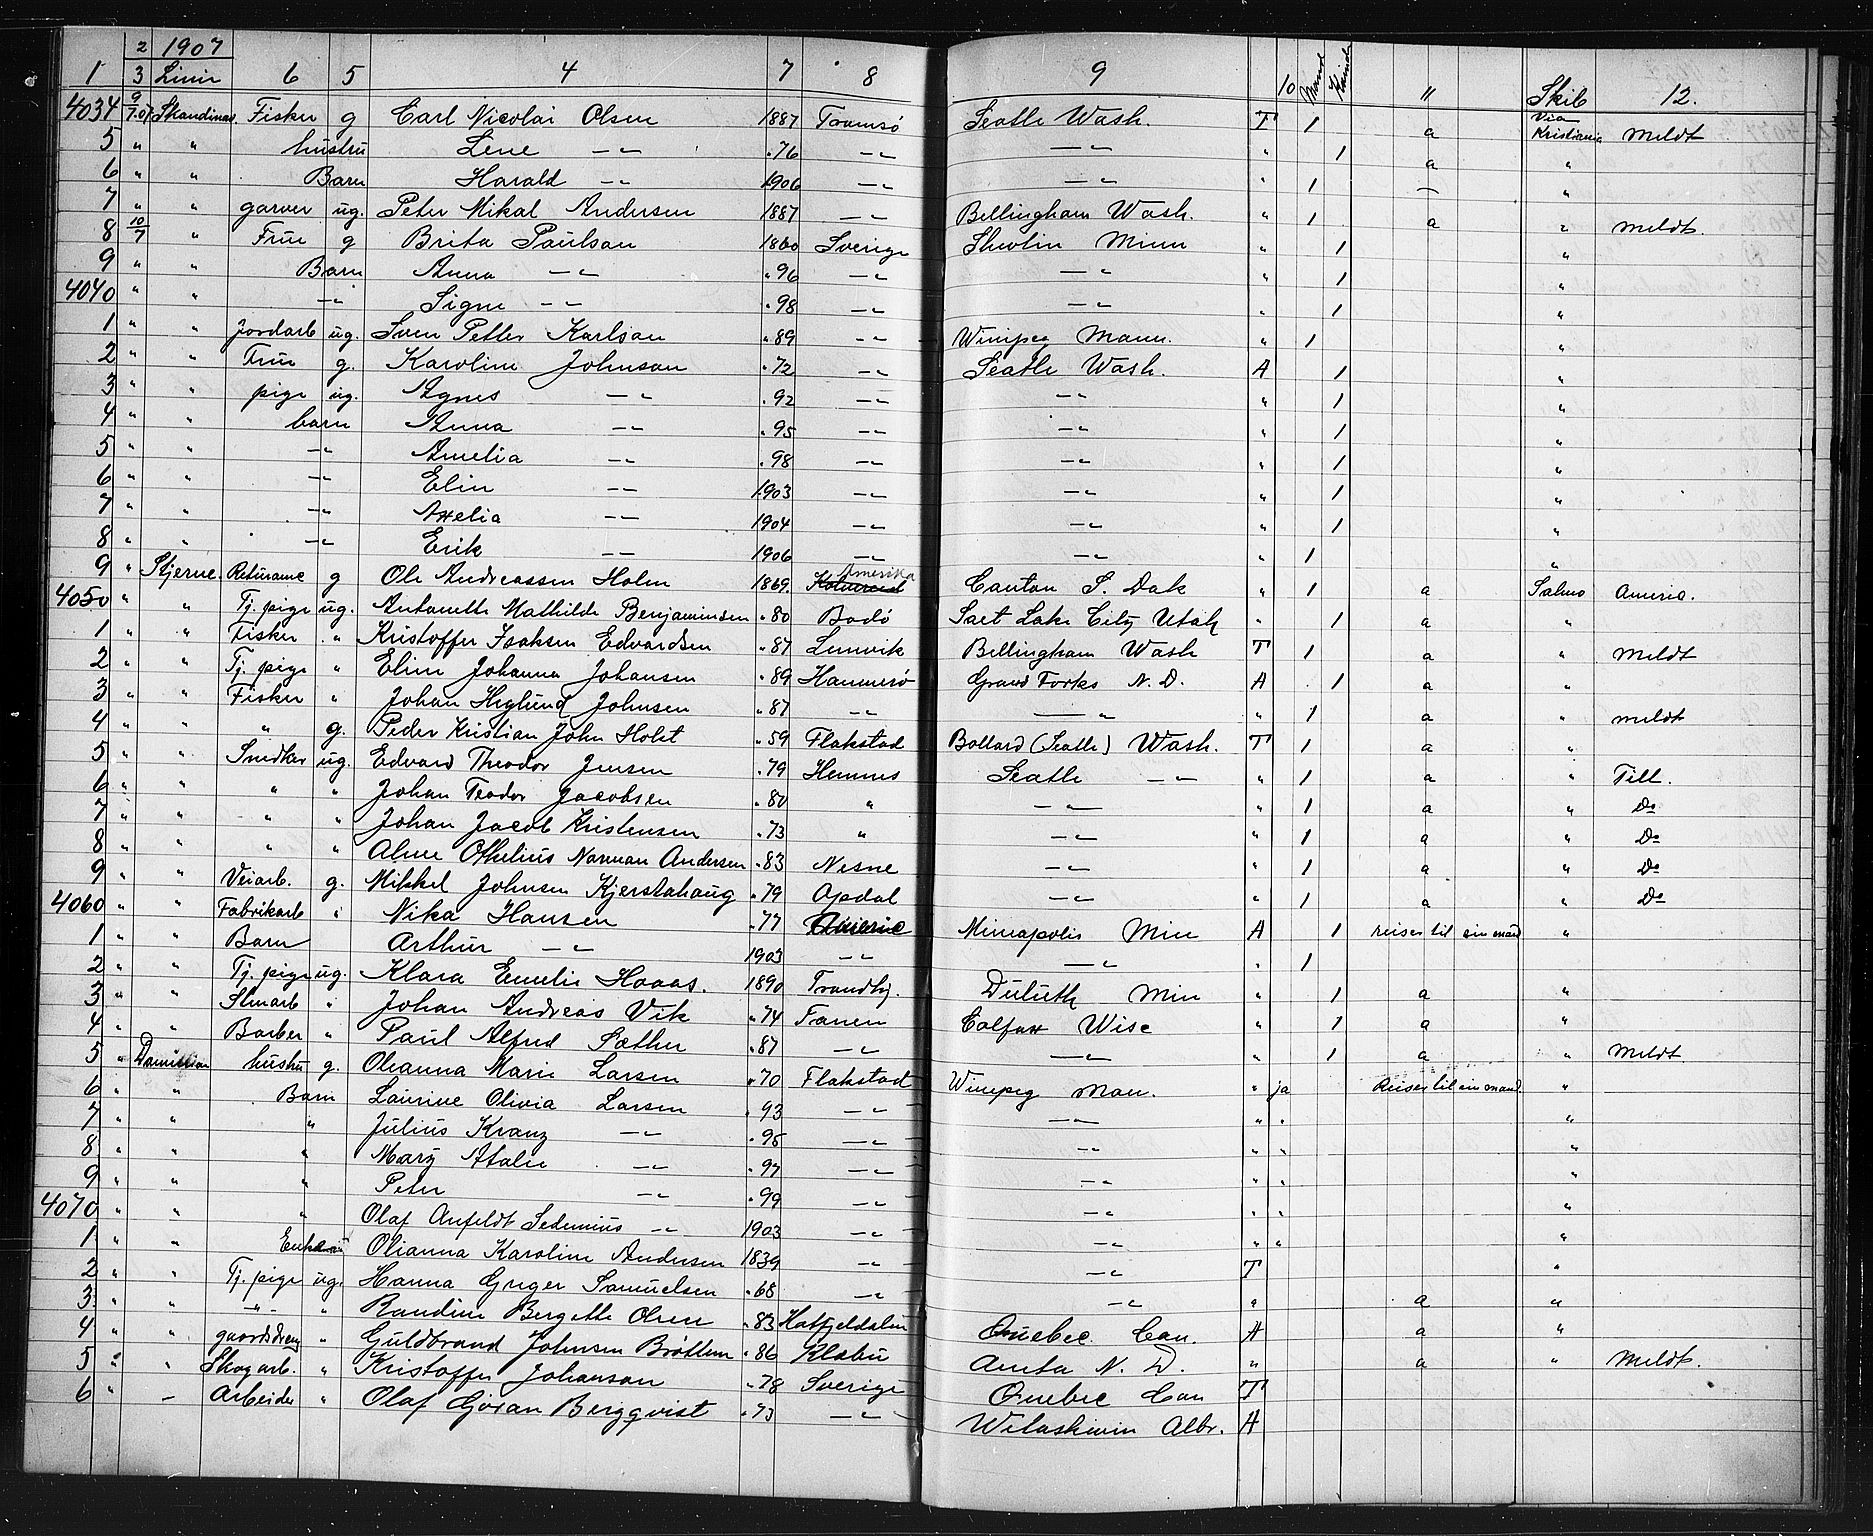 2 1907
1 3 Linie 6 5 4 7 8 9 10 Mand Kvinde 11 Skib 12.
4034 9/7.07 Skandinav. Fisker g Carl Nicolai Olsen 1887 Tromsø Seatle Wash. T 1 a Via Kristiania Meldt
5 " " hustru Lene —"— " 76 —"— —"— " 1 a "
6 " " Barn Harald —"— 1906 —"— —"— " 1 — "
7 " " garver ug. Peter Mikal Andersen 1887 —"— Bellingham Wash. " 1 a " Meldt
8 10/7 " Frue g Brita Paulson 1860 Sverige Shevlin Minn " 1 "
9 " " Barn Anna —"— " 96 —"— —"— " 1 "
4040 " " —"— Signe —"— " 98 —"— —"— " 1 "
1 " " Jordarb ug. Sven Petter Karlson " 89 —"— Winipeg Mann. " 1 "
2 " " Frue g. Karoline Johnson " 72 —"— Seatle Wash. A 1 "
3 " " pige ug. Agnes —"— " 92 —"— —"— " 1 "
4 " " barn Anna —"— " 95 —"— —"— " 1 "
5 " " —"— Amelia —"— " 98 —"— —"— " 1 "
6 " " —"— Elin —"— 1903 —"— —"— " 1 "
7 " " —"— Axelia —"— 1904 —"— —"— " 1 "
8 " " —"— Erik —"— 1906 —"— —"— " 1 "
9 " Stjerne. Returame g Ole Andreassen Holm 1869. Amerika Canton S. Dak " 1 a Salmo Ameria.
4050 " " Tj. pige ug. Antonette Mathilde Benjaminsen " 80 Bodø Salt Lake City Utah " 1 a "
1 " " Fisker " Kristoffer Isaksen Edvardsen " 87 Lenvik Bellingham Wash T 1 a " Meldt
2 " " Tj. pige " Eline Johanna Johansen " 89 Hammerø Grand Forks N. D. A 1 a "
3 " " Fisker " Johan Heglund Johnsen " 87 —"— —"— " 1 a " meldt
4 " " " g. Peder Kristian John Holst " 59 Flakstad Ballard (Seatle) Wash. T 1 a "
5 " " Snedker ug. Edvard Theodor Jensen " 79 Hemnes Seatle —"— " 1 a " Tilt.
6 " " " " Johan Teodor Jacobsen " 80 " —"— " 1 a " Do
7 " " " " Johan Jacob Kristensen " 73 " —"— " 1 a " Do
8 " " " " Alme Othelius Norman Andersen " 83 Nesne —"— " 1 a " Do
9 " " Veiarb. g. Mikkel Johnsen Kjerstahaug " 79 Opdal —"— " 1 a " Do
4060 " " Fabrikarb " Nika Hansen " 77 Americ Mineapolis Min A 1 reiser til sin mand "
1 " " Barn Arthur —"— 1903 —"— —"— " 1
2 " " Tj. pige ug. Klara Emelie Haaas. 1890 Trondhj. Duluth Min " 1 a "
3 " " Stenarb " Johan Andreas Vik " 74 Fanen Colfax Wisc " 1 a "
4 " " Barber " Paul Alfred Sæther " 87 —"— —"— " 1 a " Meldt
5 " Daminian hustru g. Oleanna Marie Larsen " 70 Flakstad Winepeg Man. " ja Reiser til sin mand "
6 " " Barn Laurine Olivia Larsen " 93 —"— —"— " " "
7 " " " Julius Kranz —"— " 95 —"— —"— " " "
8 " " " Mary Atalie —"— " 97 —"— —"— " " "
9 " " " Peter —"— " 99 —"— —"— " " "
4070 " " " Olaf Anfeldt Sedenius —"— 1903 —"— —"— " " "
1 " " Olianna Karoline Andersen 1839 —"— —"— T "
2 " " Tj. pige ug. Hanna Greger Samuelsen " 68 —"— —"— " a "
3 " " —"— " Randine Bergette Olsen " 83 Hatfjeldalen Quebec Can. A a "
4 " " gaardsdreng " Guldbrand Johnsen Brøttem " 86 Klæbu Aneta N. D. " a " Meldt.
5 " " Skogarb. " Kristoffer Johanson " 78 Sverige Quebec Can T
6 " — Arbeider " Olaf Göran Bergqvist " 73 —"— Witaskiwin Albr. A